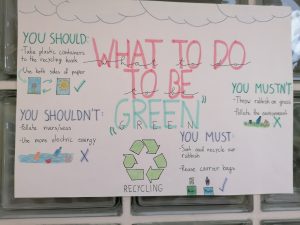 YOU SHOULD:
- Take plastic containers
to the recycling bank
- Use both sides of paper
WHAT TO DO
What to do
TO BE
to be
"GREEN"
GREEN
YOU MUSTN'T
- Throw rubbish on grass
- Pollute the environment
YOU SHOULDN'T:
- Pollute rivers/seas
- Use more electric energy
YOU MUST:
- Sort and recycle our
rubbish
- Reuse carrier bags
RECYCLING